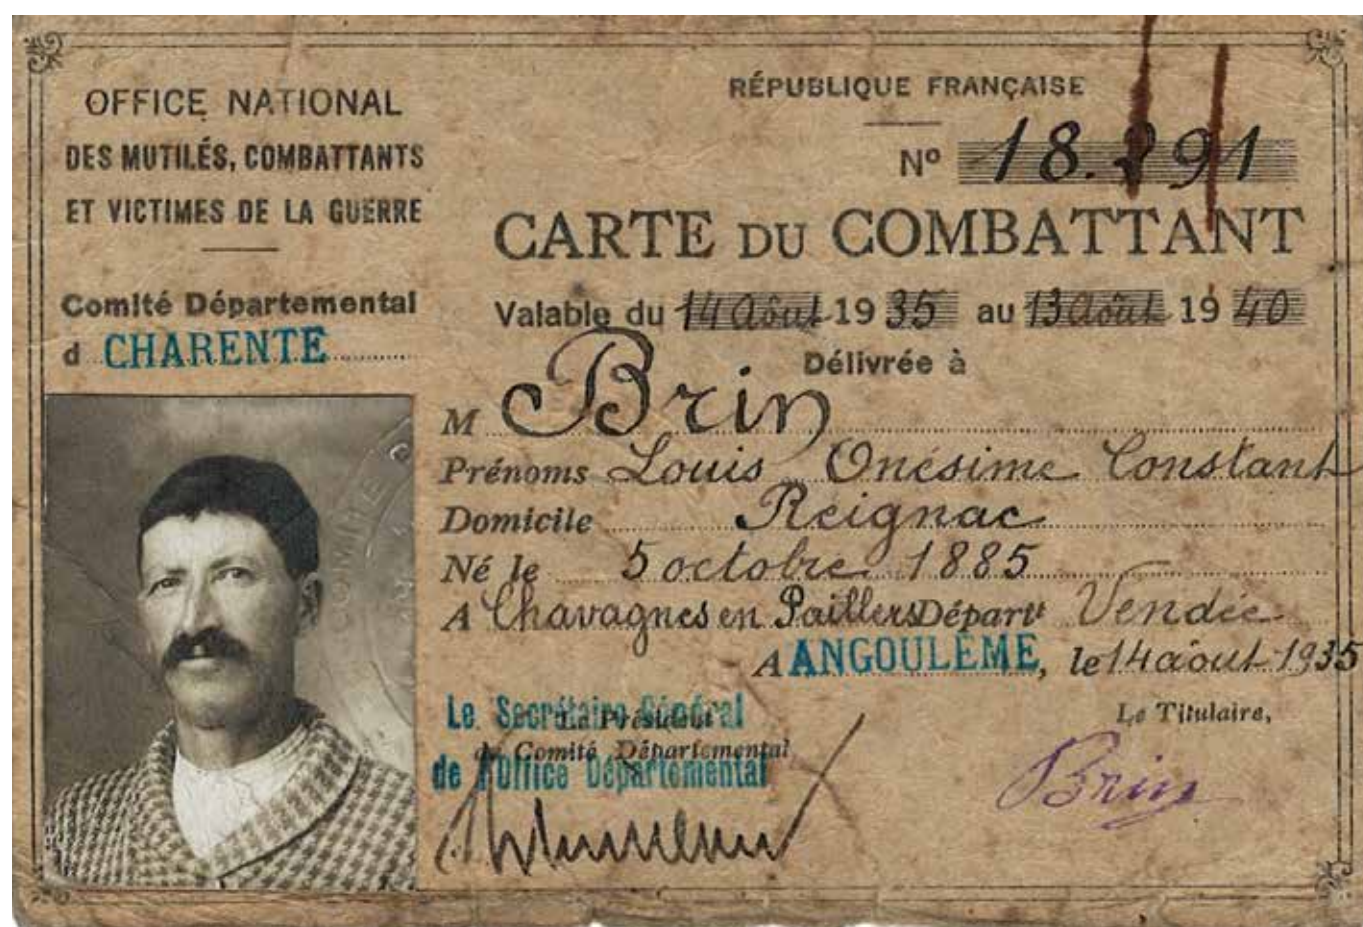 OFFICE NATIONAL
DES MUTILÉS, COMBATTANTS
ET VICTIMES DE LA GUERRE
Comité Départemental
d CHARENTE
RÉPUBLIQUE FRANÇAISE
Nº 18.291
CARTE DU COMBATTANT
Valable du 14 août 1935 au 13 août 1940
Délivrée à
M Brin
Prénoms Louis Onésime Constant
Domicile Reignac
Né le 5 octobre 1885
A Chavagnes en Paillers Départt Vendée
A ANGOULÊME, le 14 août 1935
Le Secrétaire Général
Le Président
du Comité Départemental
de l'Office Départemental
Le Titulaire,
Brin
COMITÉ